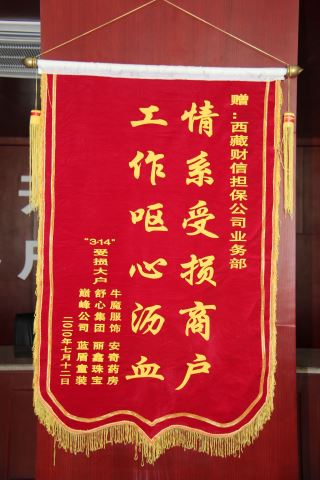 赠：西藏财信担保公司业务部
情系受损商户
工作呕心沥血
"3·14"受损大户
牛魔服饰 安奇药房
舒心集团 丽鑫珠宝
巅峰公司 蓝盾童装
二〇一〇年七月十二日